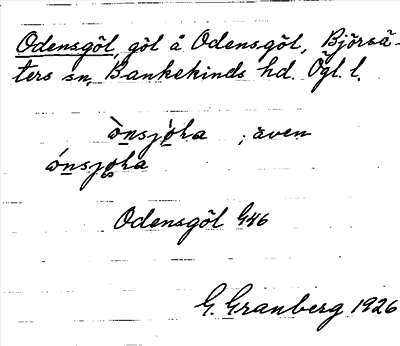 Odensgöl, göl å Odensgöl, Björsä-
ters sn, Bankekinds hd. Ögl. l.
ò̱nsjo̱ka ; även
ó̱nsjo̱ka
Odensgöl G46
G. Granberg 1926